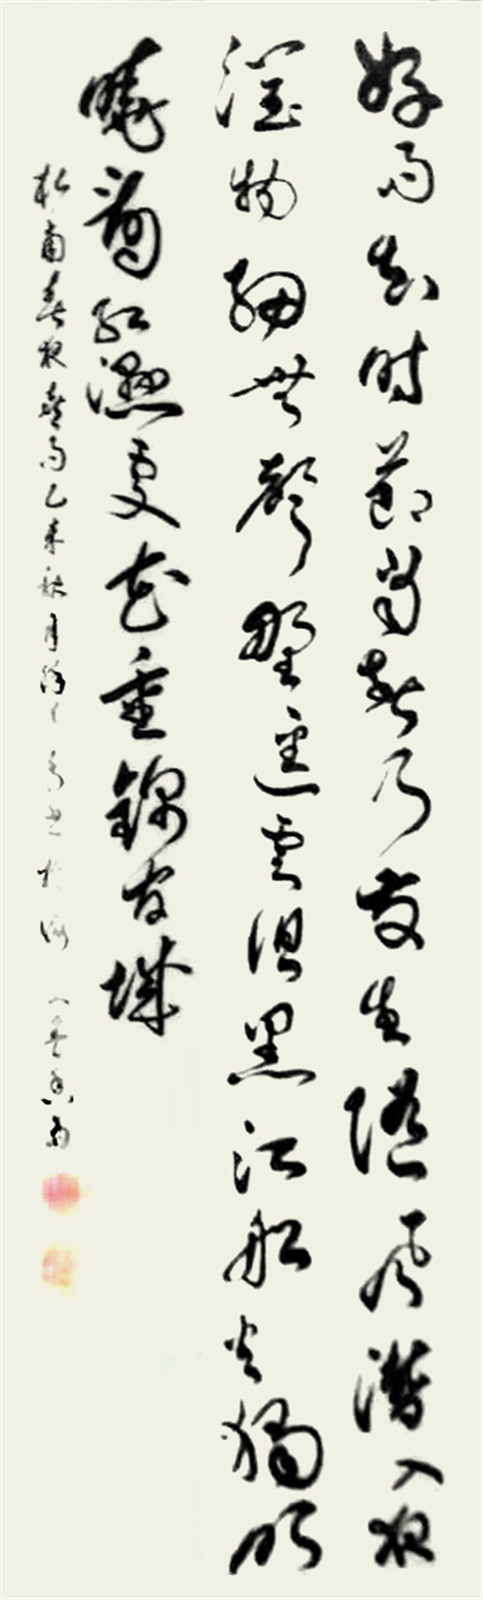 好雨知时节当春乃发生随风潜入夜
润物细无声野径云俱黑江船火独明
晓看红湿处花重锦官城
杜甫春夜喜雨乙未秋月